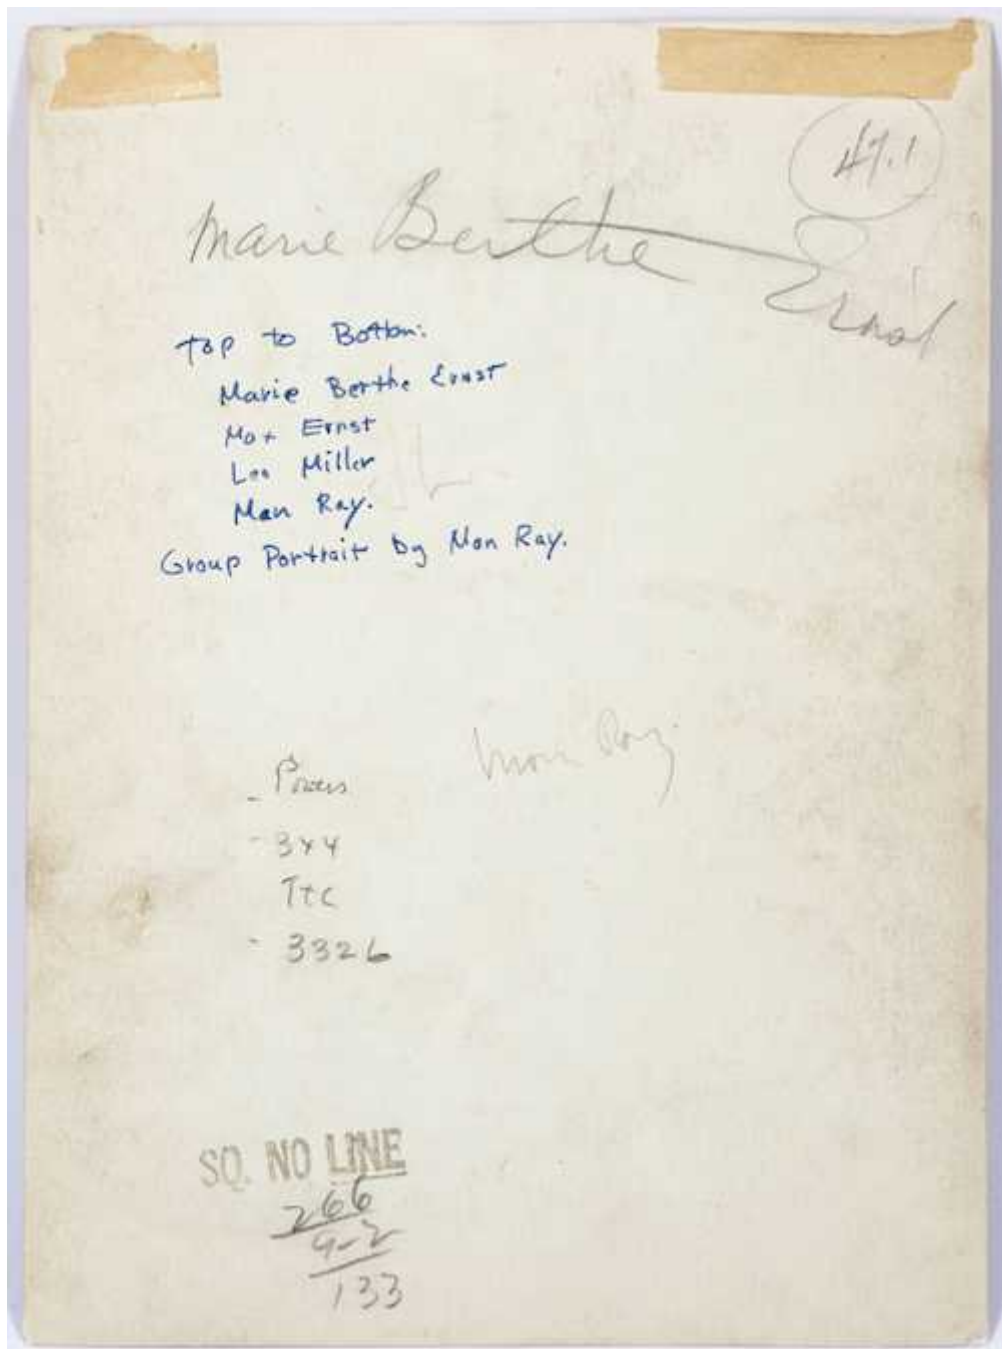 47.1
Marie Berthe Ernst
Top to Bottom:
Marie Berthe Ernst
Max Ernst
Lee Miller
Man Ray.
Group Portrait by Man Ray.
Man Ray.
- 3x4
- 3326
SQ. NO LINE
266
9-2
133